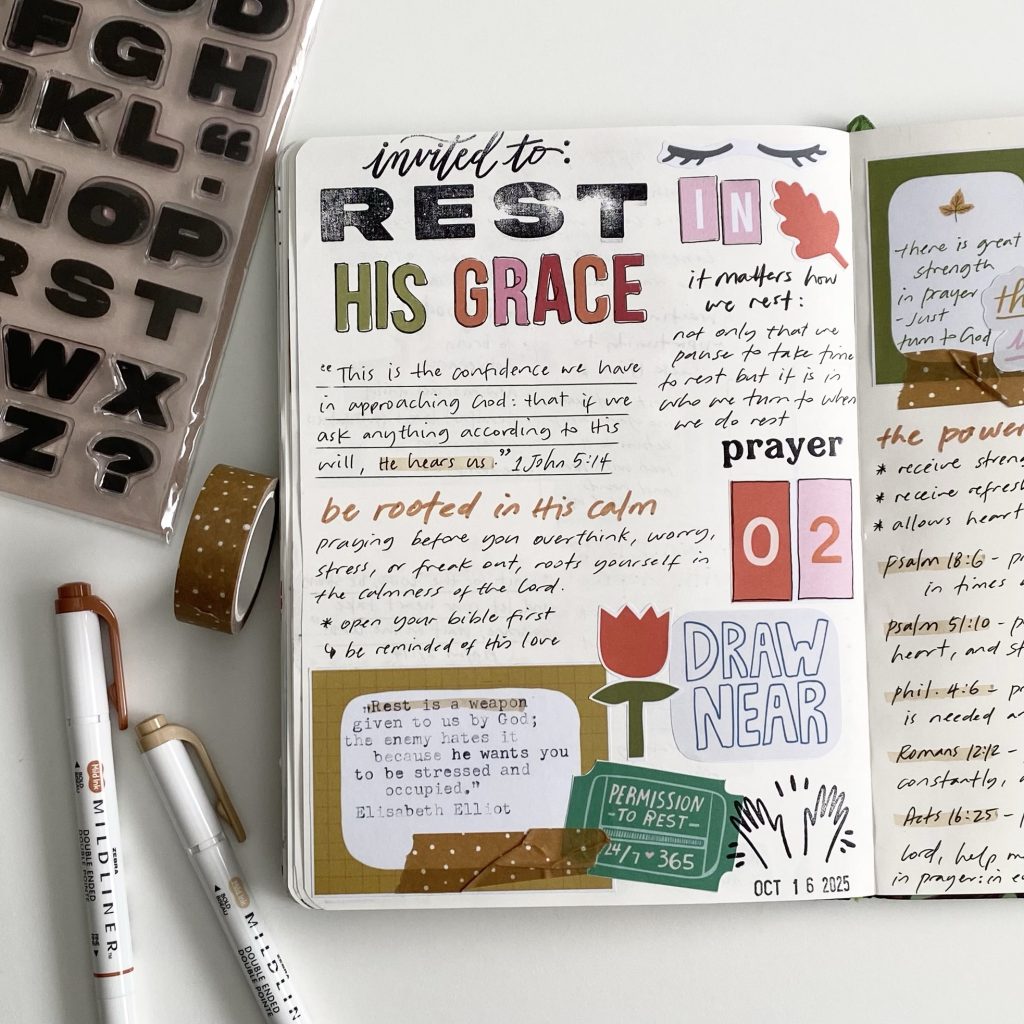 D
F G H
J K L "
N O P
R S T
W X
Z ?
invited to:
REST IN
HIS GRACE
"This is the confidence we have
in approaching God: that if we
ask anything according to His
will, He hears us." 1 John 5:14
be rooted in His calm
praying before you overthink, worry,
stress, or freak out, roots yourself in
the calmness of the Lord.
* open your bible first
↳ be reminded of His love
„Rest is a weapon
given to us by God;
the enemy hates it
because he wants you
to be stressed and
occupied."
Elisabeth Elliot
it matters how
we rest:
not only that we
pause to take time
to rest but it is in
who we turn to when
we do rest
prayer
02
DRAW
NEAR
PERMISSION
-TO REST-
24/7 ♥ 365
OCT 16 2025
there is great
strength
in prayer
- just
turn to God
the power
* receive stren
* receive refres
* allows heart
psalm 18:6 - p
in times
psalm 51:10 - p
heart, and st
phil. 4:6 - p
is needed a
Romans 12:12 -
constantly,
Acts 16:25 - p
Lord, help m
in prayer: in e
ZEBRA
Mild ink MILDLINER™
DOUBLE ENDED
DOUBLE POINTE
BOLD
BISEAU
ZEBRA
Mild ink MILDLIN
DOUBLE ENDED
DOUBLE POINTE
BOLD
BISEAU